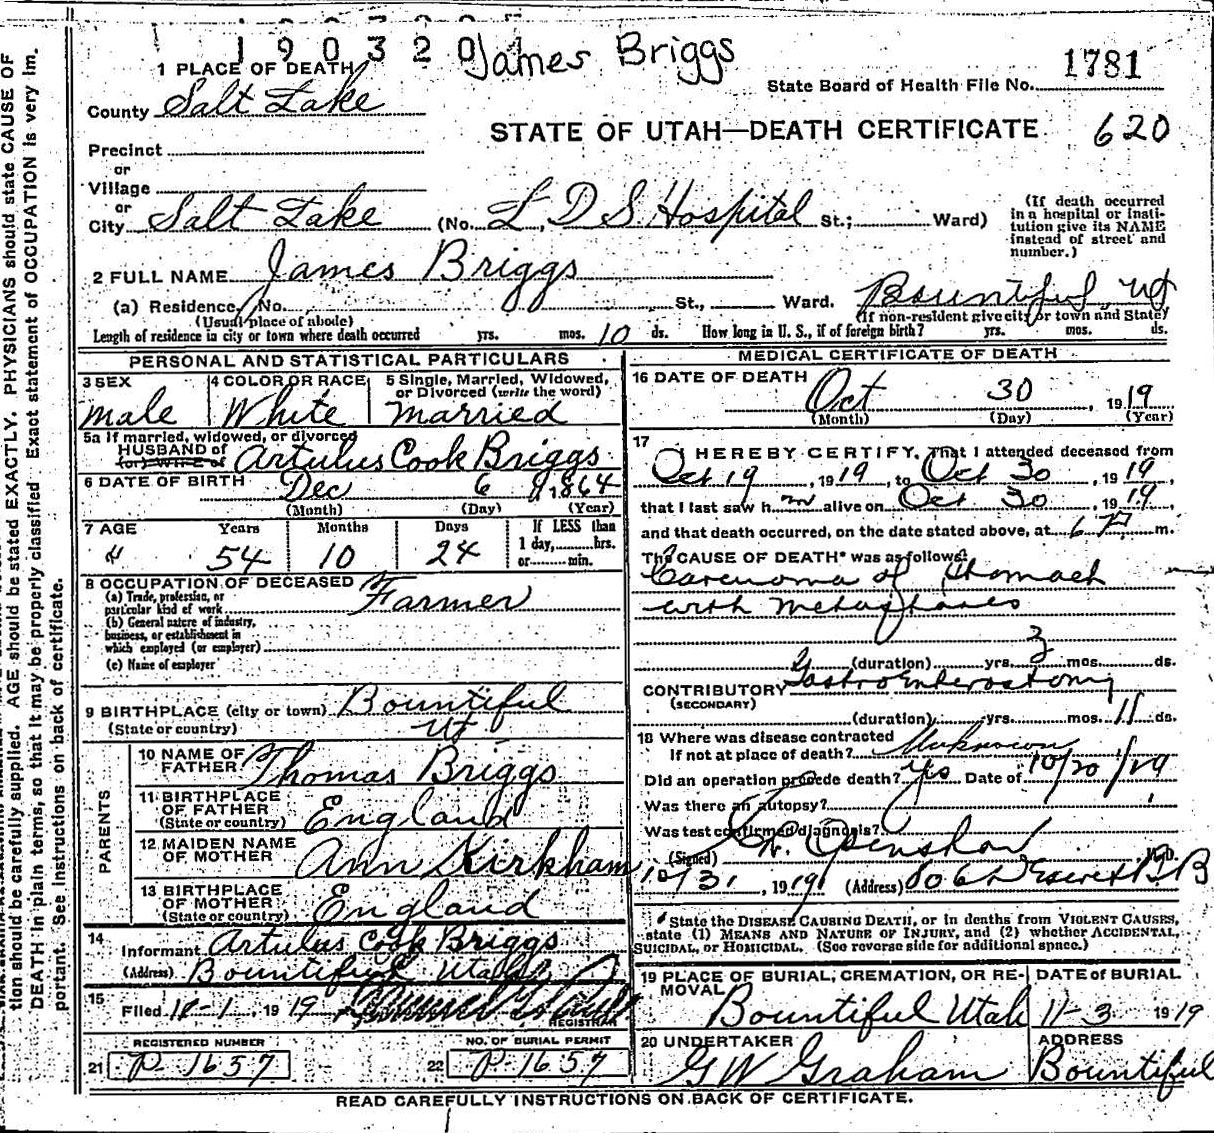 190320 James Briggs
1 PLACE OF DEATH
State Board of Health File No. 1781
County Salt Lake
STATE OF UTAH—DEATH CERTIFICATE 620
Precinct
or
Village
or
City Salt Lake (No. L D S Hospital St.; Ward)
(If death occurred in a hospital or insti-
tution give its NAME
instead of street and
number.)
2 FULL NAME James Briggs
(a) Residence, No. St., Ward. Bountiful, Ut
(Usual place of abode) (If non-resident give city or town and State)
Length of residence in city or town where death occurred yrs. mos. 10 ds. How long in U. S., if of foreign birth? yrs. mos. ds.
PERSONAL AND STATISTICAL PARTICULARS
3 SEX
male
4 COLOR OR RACE
White
5 Single, Married, Widowed,
or Divorced (write the word)
married
5a If married, widowed, or divorced
HUSBAND of
(or) WIFE of Artulus Cook Briggs
6 DATE OF BIRTH Dec 6, 1864
(Month) (Day) (Year)
7 AGE Years Months Days If LESS than
1 day, hrs.
or min.
54 10 24
8 OCCUPATION OF DECEASED
(a) Trade, profession, or
particular kind of work Farmer
(b) General nature of industry,
business, or establishment in
which employed (or employer)
(c) Name of employer
9 BIRTHPLACE (city or town) Bountiful
(State or country) Ut
PARENTS
10 NAME OF
FATHER Thomas Briggs
11 BIRTHPLACE
OF FATHER
(State or country) England
12 MAIDEN NAME
OF MOTHER Ann Kirkham
13 BIRTHPLACE
OF MOTHER
(State or country) England
14
Informant Artulus Cook Briggs
(Address) Bountiful Utah
15
Filed 11-1, 1919
REGISTRAR
REGISTERED NUMBER
21 P 1657
NO. OF BURIAL PERMIT
22 P 1657
MEDICAL CERTIFICATE OF DEATH
16 DATE OF DEATH Oct 30, 1919
(Month) (Day) (Year)
17
I HEREBY CERTIFY, That I attended deceased from
Oct 19, 1919, to Oct 30, 1919,
that I last saw h m alive on Oct 30, 1919,
and that death occurred, on the date stated above, at 6 P m.
The CAUSE OF DEATH* was as follows:
Carcinoma of stomach
with metastases
(duration) yrs. 3 mos. ds.
CONTRIBUTORY Gastro Enterostomy
(SECONDARY)
(duration) yrs. mos. 11 ds.
18 Where was disease contracted
If not at place of death? Unknown
Did an operation precede death? Yes Date of 10/20/19
Was there an autopsy?
Was test confirmed diagnosis?
(Signed) M.D.
10/31, 1919 (Address) 806
* State the DISEASE CAUSING DEATH, or in deaths from VIOLENT CAUSES,
state (1) MEANS AND NATURE OF INJURY, and (2) whether ACCIDENTAL,
SUICIDAL, or HOMICIDAL. (See reverse side for additional space.)
19 PLACE OF BURIAL, CREMATION, OR RE-
MOVAL
Bountiful Utah
DATE of BURIAL
11-3 1919
20 UNDERTAKER
G W Graham
ADDRESS
Bountiful
READ CAREFULLY INSTRUCTIONS ON BACK OF CERTIFICATE.
tion should be carefully supplied. AGE should be stated EXACTLY. PHYSICIANS should state CAUSE OF
DEATH in plain terms, so that it may be properly classified. Exact statement of OCCUPATION is very im.
portant. See instructions on back of certificate.